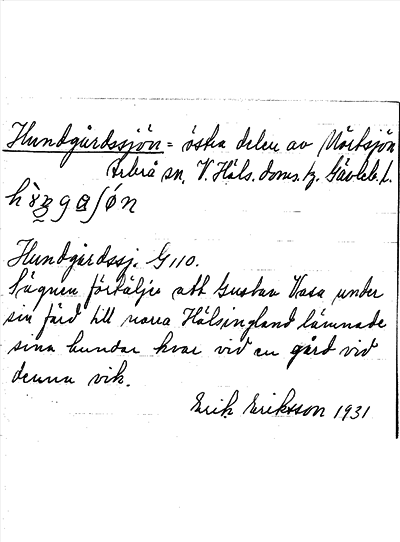 Hundgårdssjön = östra delen av Vörtsjön
Arbrå sn, V. Häls. doms. tg. Gävleb. l.
Hundgårdssj. G 110.
Sägnen förtäljer att Gustav Vasa under
sin färd till norra Hälsingland lämnade
sina hundar kvar vid en gård vid
denna vik.
Erik Eriksson 1931